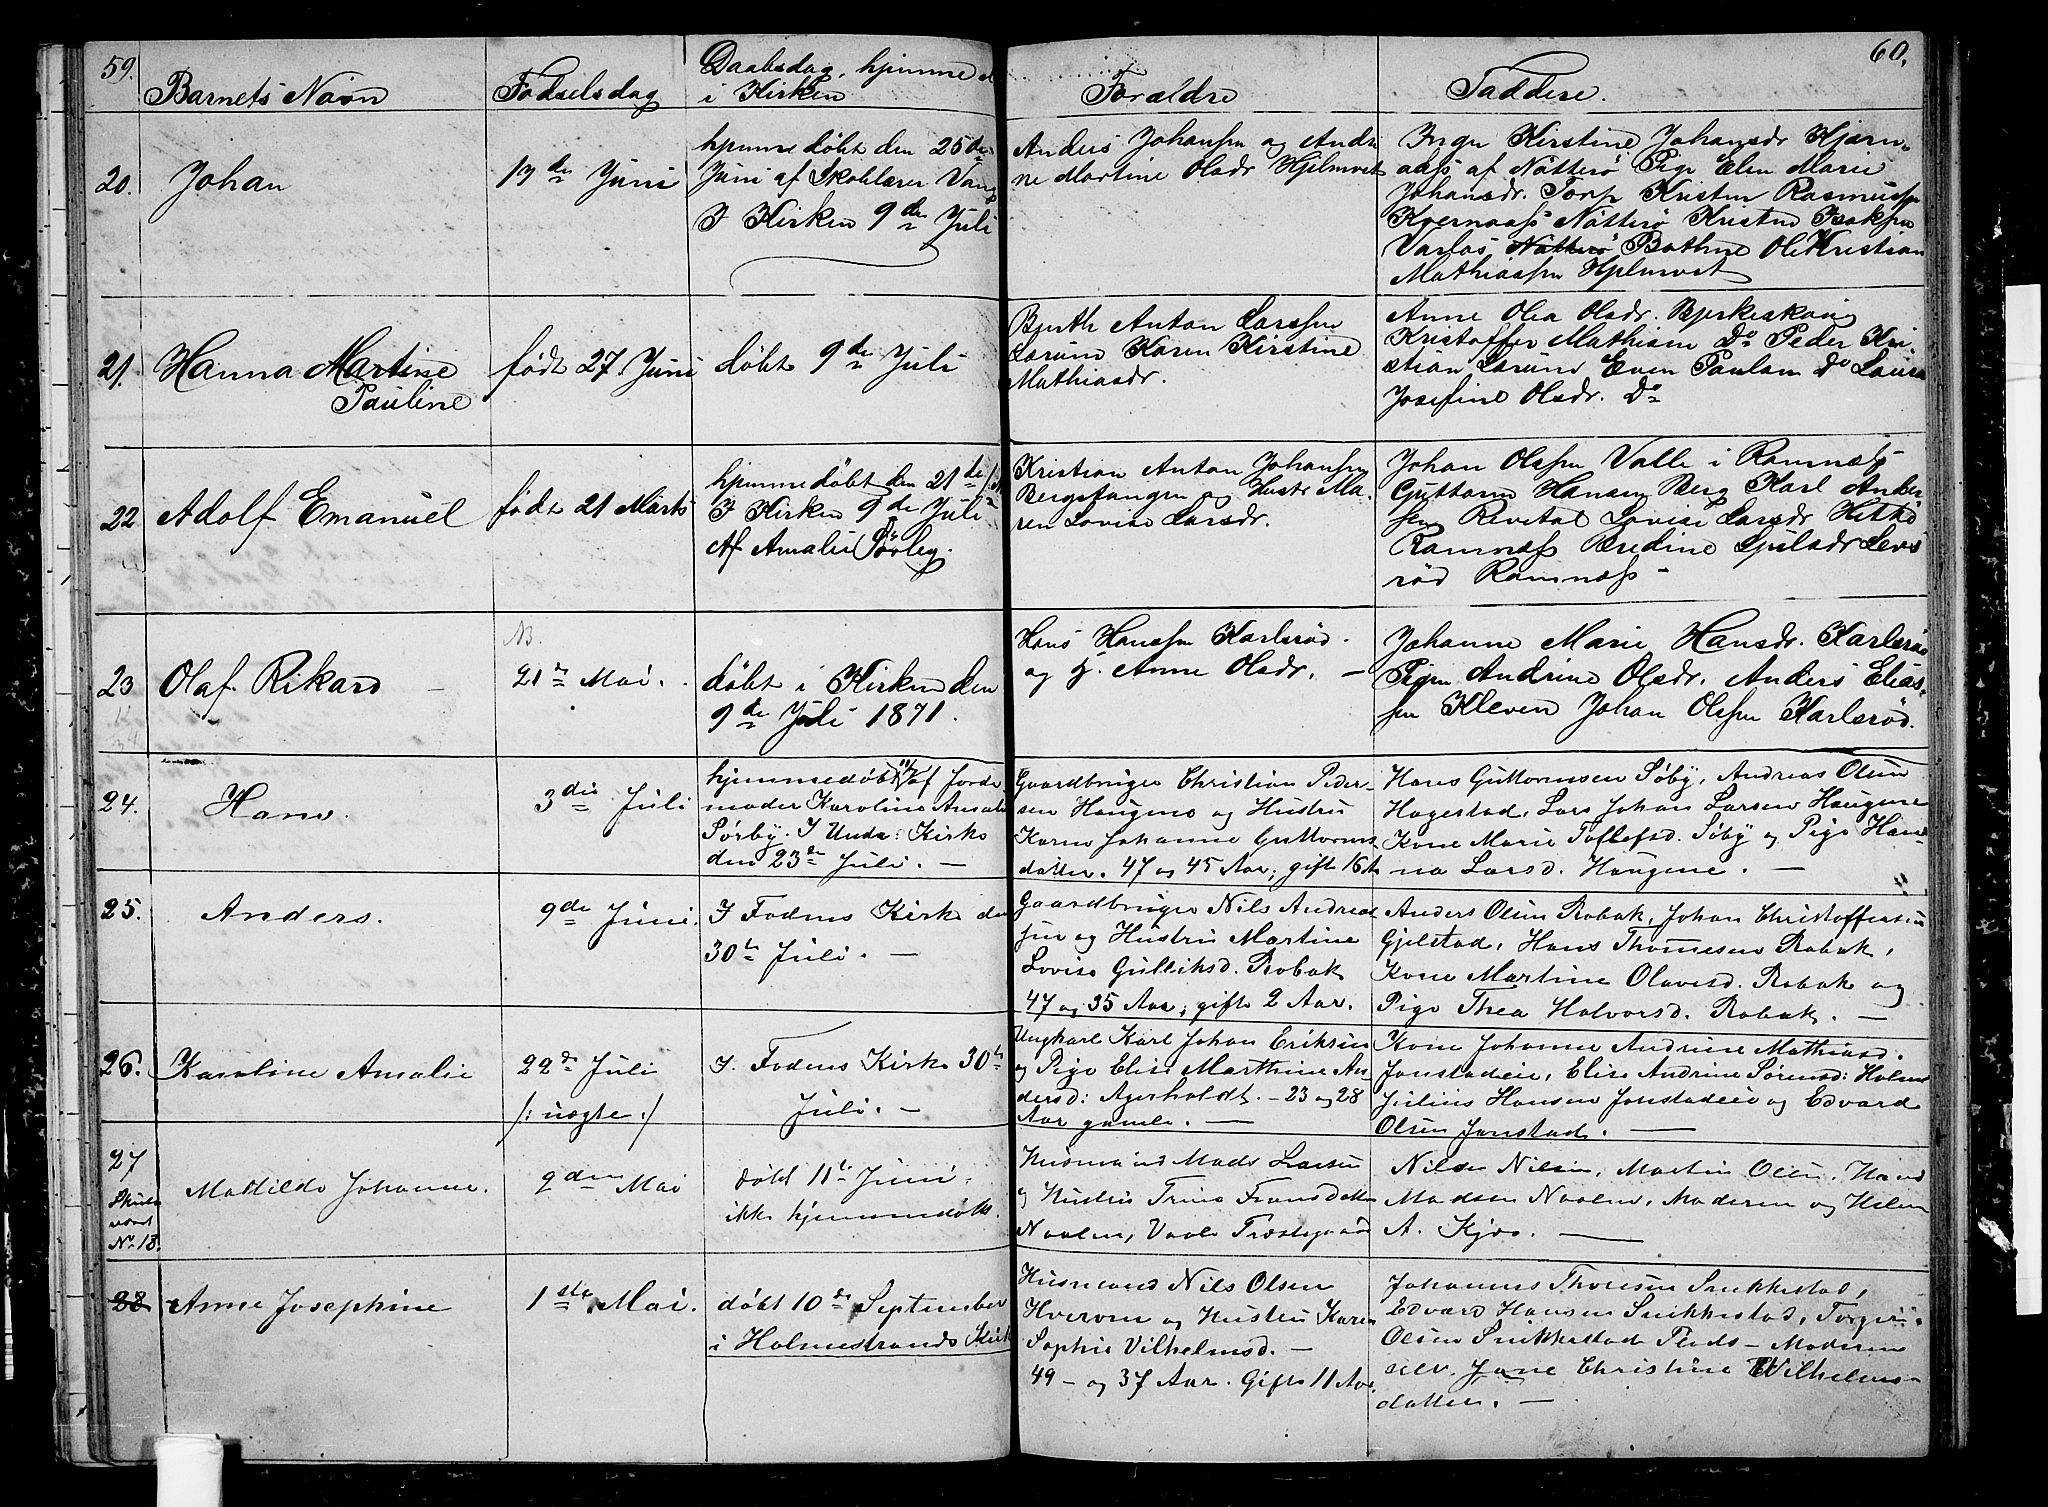 59.
Barnets Navn
Fødselsdag
Daabsdag, hjemme el
i Kirken
Forældre
Faddere.
60.
20.
Johan
17de Juni
hjemmedøbt den 25de
Juni af Skolelærer Vang
I Kirken 9de Juli
Anders Johansen og Andri
ne Martine Olsdr Hjelmvet
Inger Kirstine Johansdr Kjærn-
aas af Nøtterø Pige Elen Marie
Johansdr. Torp Kristen Rasmussen
Kvernaas Nøtterø Kristen Isaksen
Varlos Nøtterø Bathne Ole Kristian
Mathiassen Hjelmvet
21.
Hanna Martine
Pauline
født 27. Juni
døbt 9de Juli
Bernth Anton Larssen
Lærum Karen Kirstine
Mathiasdr.
Anne Olea Olsdr. Bjerkeskoug
Kristoffer Mathisen Do Peder Kri
stian Lørum Even Paulsen Do Laura
Josefine Olsdr. Do
22
Adolf Emanuel
født 21 Marts
hjemmedøbt den 21de
I Kirken 9de Juli
Af Amalie Sørby.
Kristian Anton Johansen
Bergstangen og Hustr Ma-
ren Lovise Larsdr.
Johan Olssen Valle i Ramnæs
Guttorm Hansen Berg Karl Ander
sen Revetal Lovise Larsdr
Ramnæss Bredine
rød Ramnæss
23
Olaf Rikard
NB.
21de Mai.
døbt i Kirken den
9de Juli 1871.
Hans Hanssen Karlsrød.
og H. Anne Olsdr. —
Johanne Marie Hansdr. Karlsrø
Pigen Andrine Olsdr. Anders Elias-
sen Kleven Johan Olssen Karlsrød.
24.
Hans.
3die Juli
hjemmedøbt 11/7 af Jorde
moder Karoline Amalie
Sørby. I Unde: Kirke
den 23de Juli. —
Gaardbruger Christian Peder-
sen Haugene og Hustru
Karen Johanne Guttorms-
datter. 47 og 45 Aar; gifte 16 A
Hans Guttormsen Søby, Andreas Olsen
Hagestad, Lars Johan Larsen Haugene
Kone Marie Tollefsd. Søby og Pige Han-
na Larsd. Haugene. —
25.
Anders.
9de Juni.
I Fodens Kirke den
30te Juli. —
Gaardbruger Nils Andrea
sen og Hustru Martine
Lovise Gulliksd. Robak
47 og 35 Aar; gifte 2 Aar.
Anders Olsen Robak, Johan Christoffersen
Gjelstad, Hans Thomesen Robak,
Kone Martine Olavesd. Robak og
Pige Thea Halvorsd. Robak. —
26.
Karoline Amalie
22de Juli
/: uægte :/
I Fodens Kirke 30te
Juli. —
Ungkarl Karl Johan Eriksen
og Pige Elise Marthine An
dersd: Agerholdt. — 23 og 28
Aar gamle. —
Kone Johanne Andrine Mathiasd.
Jonstadeie, Elise Andrine Sørensd: Holm
Julius Hansen Jonstadeie og Edvard
Olsen Jonstad. —
27
Skulde
været
No 18.
Mathilde Johanne.
9den Mai
døbt 11te Juni,
ikke hjemmedøbt.
Husmand Mads Larsen
og Hustru Trine Fransdatter
Naalen, Vaale Præstegaard
Nils Nilsen, Martin Olsen, Hans
Madsen Naalen, Moderen og Helen
A. Kjær. —
28
Anne Josephine
1ste Mai.
døbt 10de September
i Holmestrands Kirke
Husmand Nils Olsen
Hverven og Hustru Karen
Sophie Vilhelmsd. —
49 — og 37 Aar. Gifte 11 Aar.
Johannes Thoresen Snekkestad,
Edvard Hansen Snekkestad, Torger
Olsen Snekkestad Plads — Moderen
selv. Jane Christine Wilhelms-
datter. —